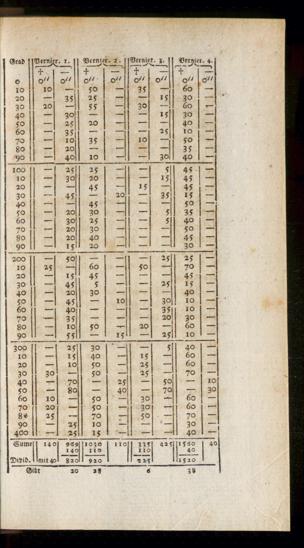 Grad Vernier. 1. Vernier. 2. Vernier. 3. Vernier. 4.
† — † — † — † —
0 0'' 0'' 0'' 0'' 0'' 0'' 0'' 0''
10 10 — 50 — 35 — 60 —
20 — 35 25 — — 15 30 —
30 20 — 55 — 30 — 60 —
40 — 30 — — — 15 30 —
50 — 25 20 — — — 40 —
60 — 35 — — — 25 10 —
70 — 10 35 — 10 — 50 —
80 — 20 — — — — 35 —
90 — 40 10 — — 30 40 —
100 — 25 25 — — 5 45 —
10 — 30 20 — — 15 45 —
20 — — 45 — 15 — 45 —
30 — 45 — 20 — 35 15 —
40 — — 45 — — — 50 —
50 — 20 30 — — 5 35 —
60 — 30 25 — — 5 40 —
70 — 20 30 — — — 50 —
80 — 20 40 — — — 45 —
90 — 15 20 — — — 30 —
200 — 50 — — — 25 25 —
10 25 — 60 — 50 — 70 —
20 — 15 45 — — — 45 —
30 — 45 5 — — 25 15 —
40 — 20 30 — — — 40 —
50 — 45 — 10 — 30 10 —
60 — 40 — — — 35 10 —
70 — 35 — — — 20 30 —
80 — 10 50 — 20 — 60 —
90 — 55 — 15 — 25 10 —
300 — 25 30 — — 5 40 —
10 — 15 40 — 15 — 60 —
20 — 10 50 — 25 — 60 —
30 30 — 50 — 25 — 70 —
40 — 70 — 25 — 50 — 10
50 — 80 — 40 — 70 — 30
60 10 — 50 — 30 — 60 —
70 20 — 50 — 30 — 60 —
80 25 — 70 — 50 — 70 —
90 — 25 10 — — — 30 —
400 — 25 15 — — — 40 —
Sume 140 960 1030 110 335 425 1560 40
140 110 110 40
Divid. mit 40 820 920 225 1520
Gibt 20 23 6 38